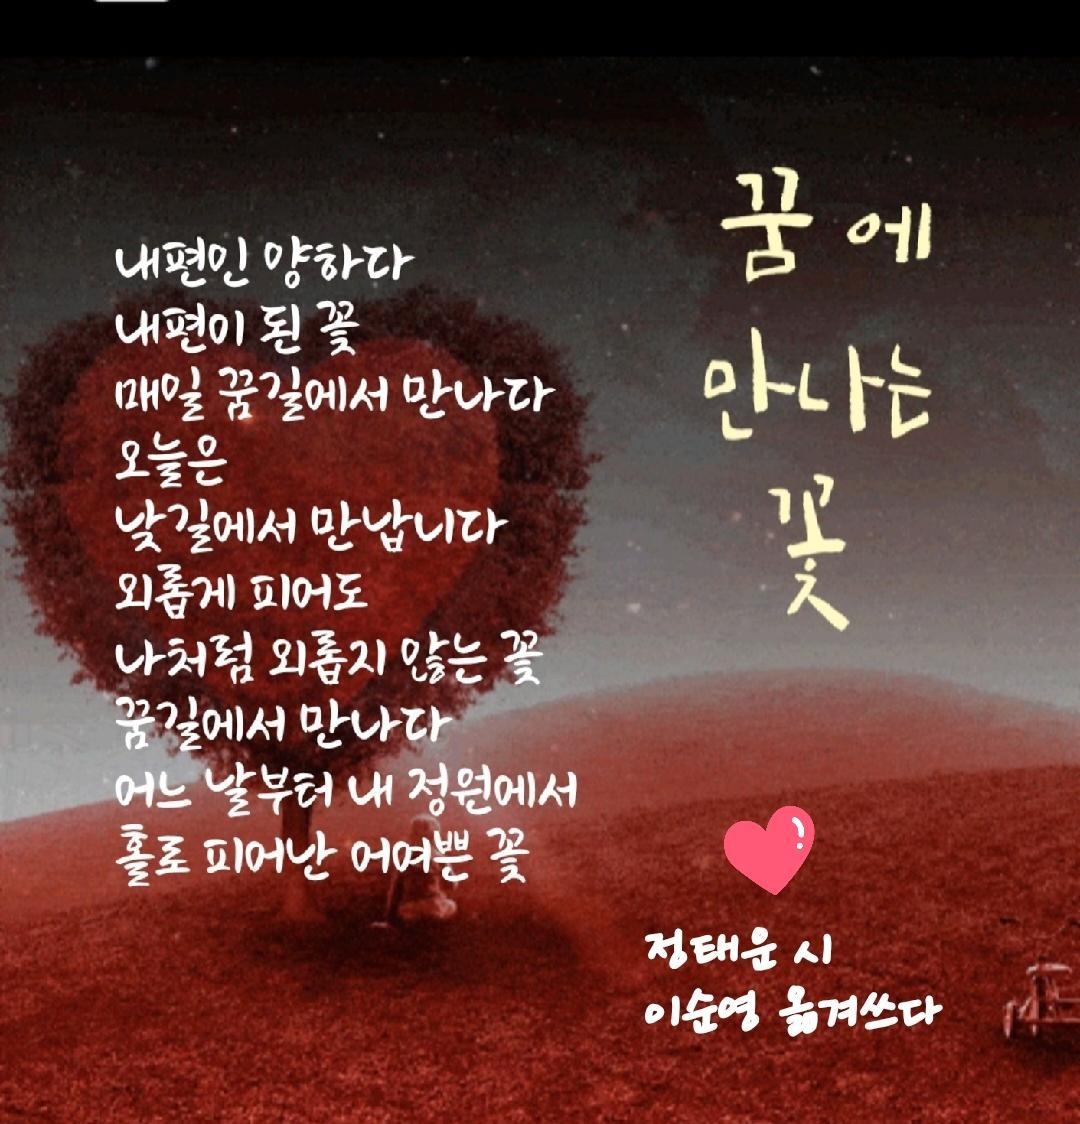 꿈에
만나는
꽃
내편인 양하다
내편이 된 꽃
매일 꿈길에서 만나다
오늘은
낮길에서 만납니다
외롭게 피어도
나처럼 외롭지 않는 꽃
꿈길에서 만나다
어느 날부터 내 정원에서
홀로 피어난 어여쁜 꽃
정태운 시
이순영 옮겨쓰다